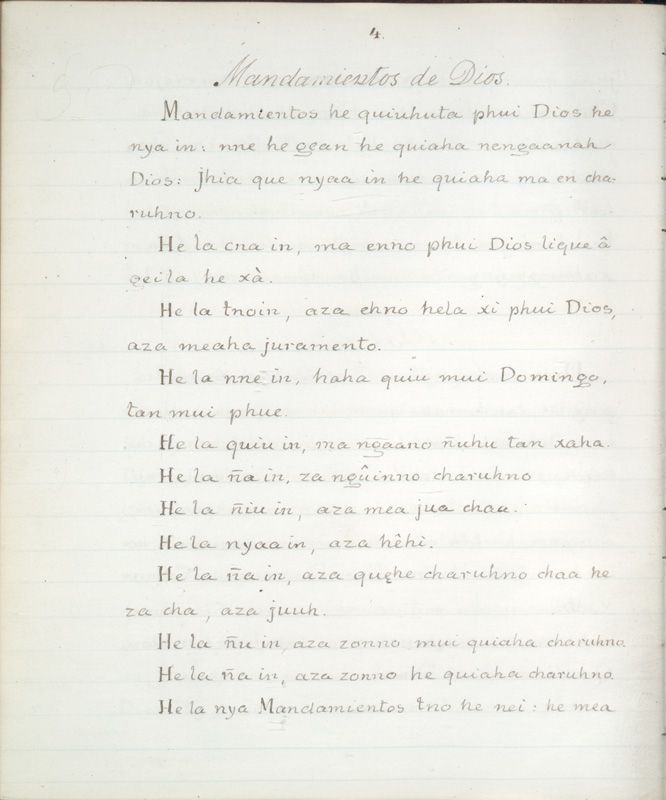 4.
Mandamientos de Dios.
Mandamientos he quiuhuta phui Dios he
nya in: nne he ȩȩan he quiaha nengaanah
Dios: jhia que nyaa in he quiaha ma en cha-
ruhno.
He la cna in, ma enno phui Dios lique â
ȩeila he xà.
He la tnoin, aza ehno hela xi phui Dios,
aza meaha juramento.
He la nne in, haha quiu mui Domingo,
tan mui phue.
He la quiu in, ma ngaano ñuhu tan xaha.
He la ña in, za ngûinno charuhno
He la ñiu in, aza mea jua chaa.
He la nyaa in, aza hêhì.
He la ña in, aza quȩhe charuhno chaa he
za cha, aza juuh.
He la ñu in, aza zonno mui quiaha charuhno.
He la ña in, aza zonno he quiaha charuhno.
He la nya Mandamientos tno he nei: he mea